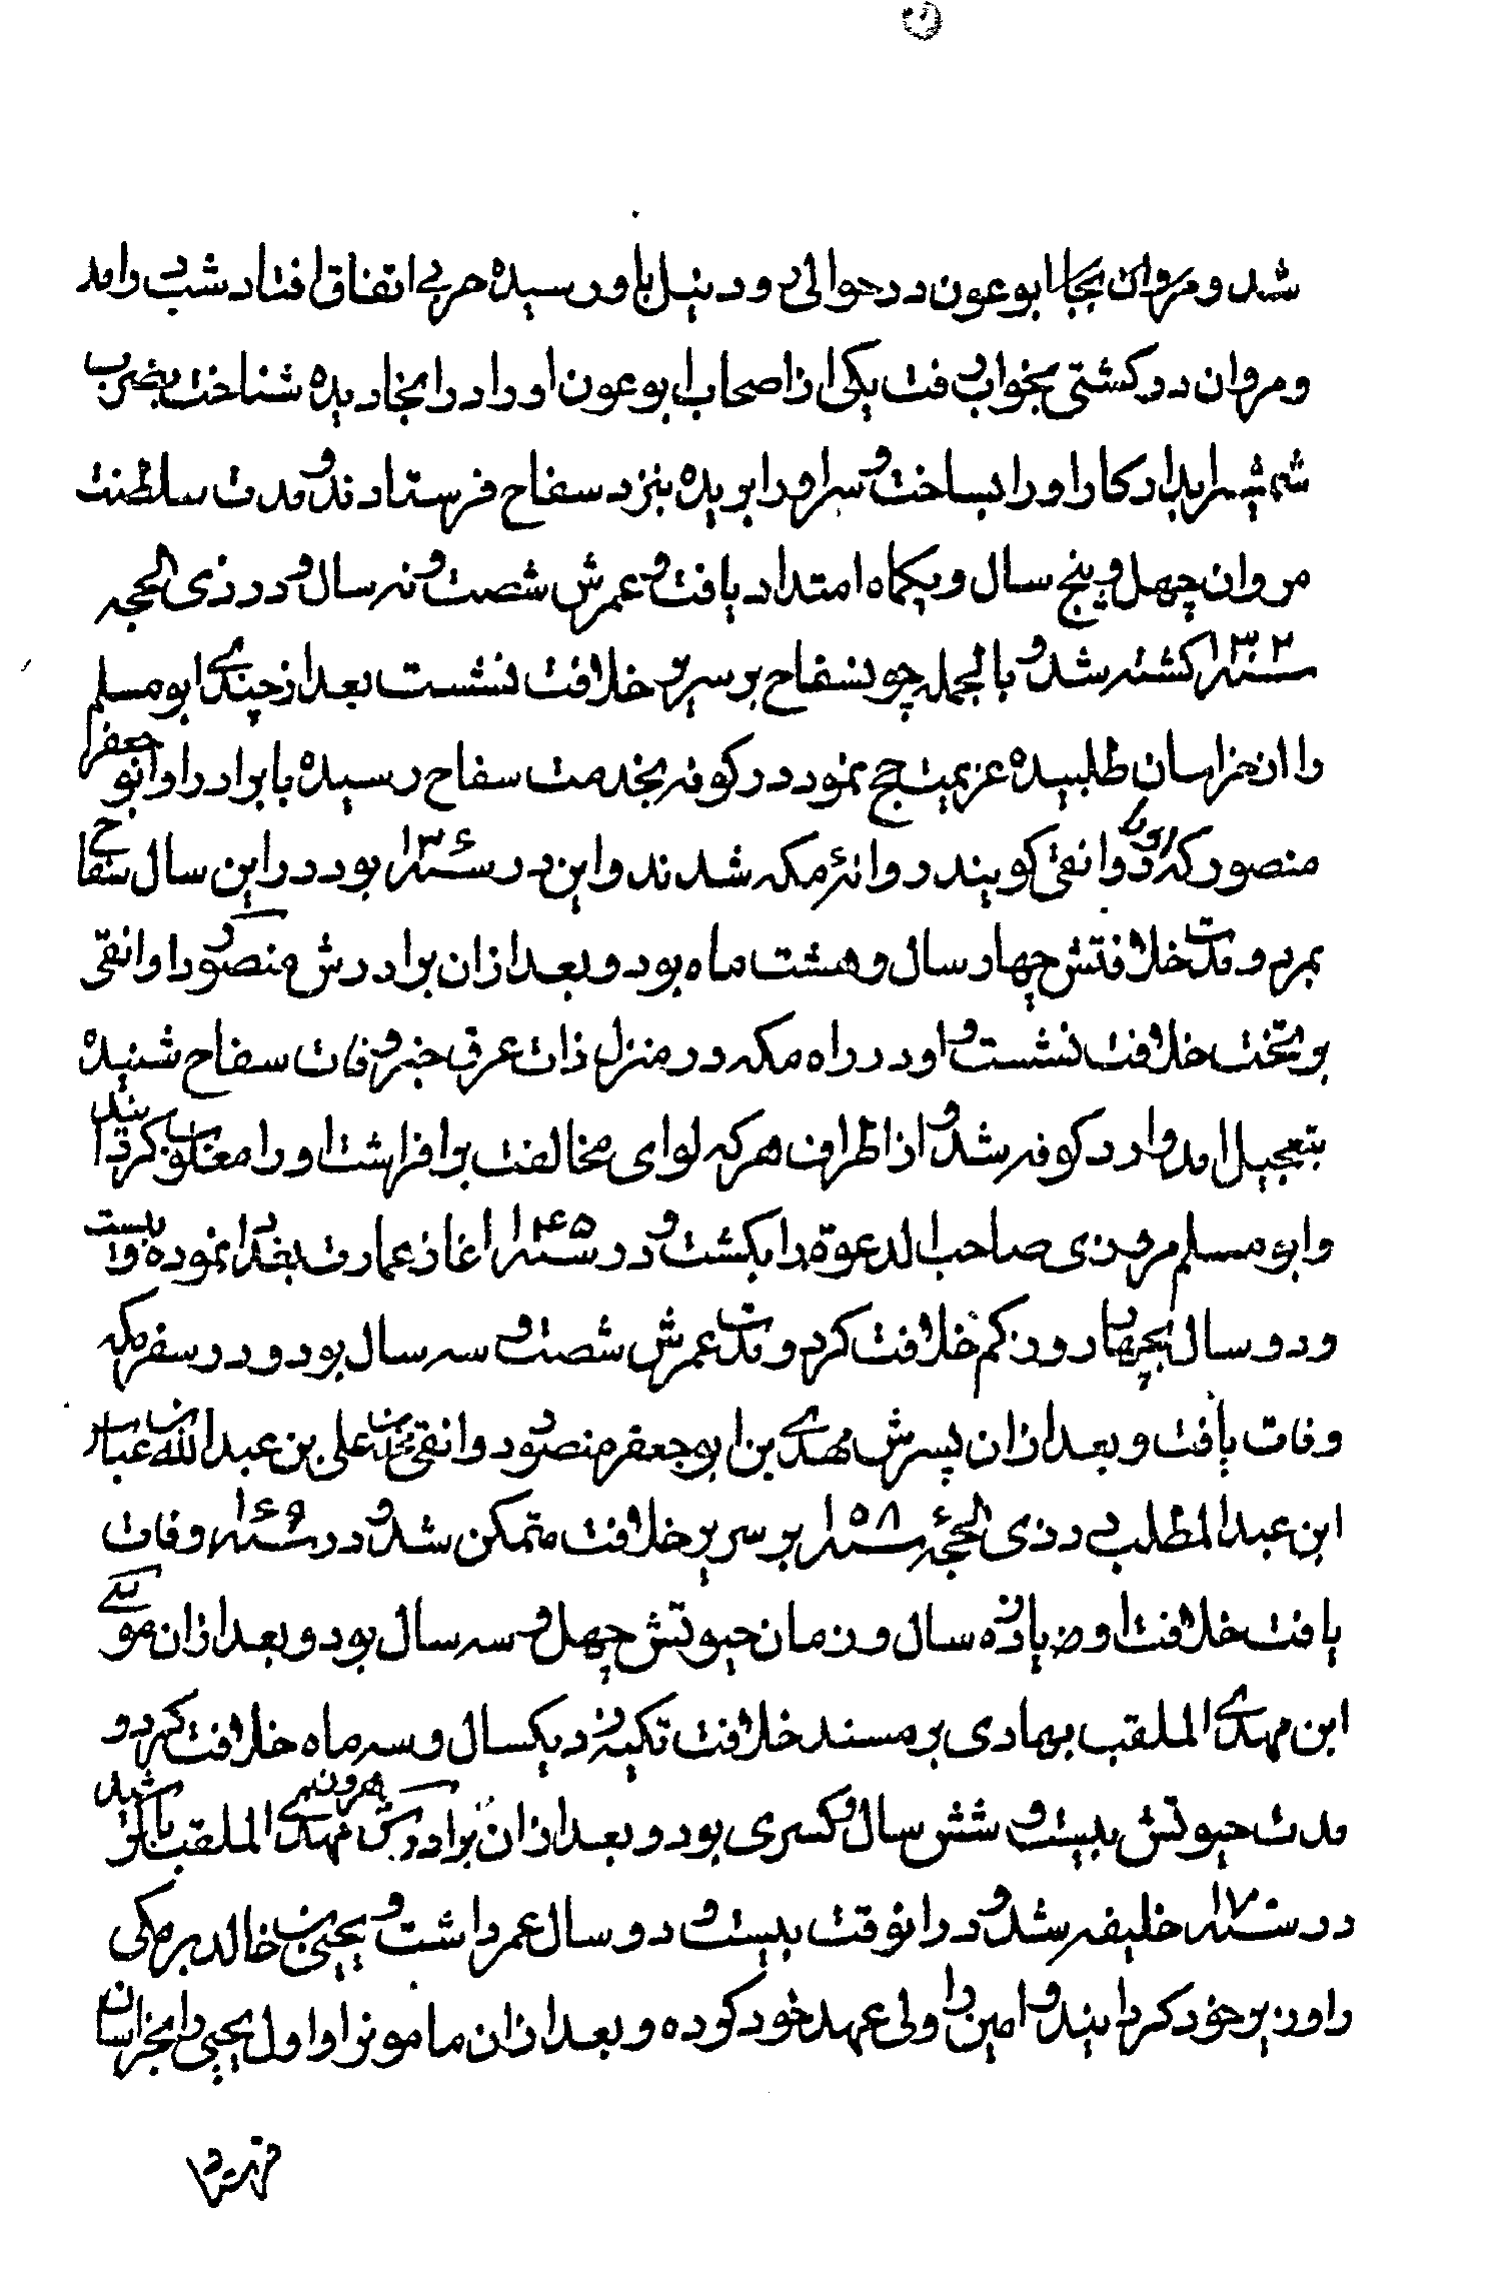 شد و مروان بجا ابو عون در حوالی رود نیل باو رسیده حربی اتفاق افتاد شبی رامد
و مروان در کشتی بخواب رفت یکی از اصحاب ابو عون او را در انجا دیده شناخت بضرب
شمشیر ابدار کار او را بساخت و سر او را بریده بنزد سفاح فرستادند و مدت سلطنت
مروان چهل و پنج سال و یکماه امتداد یافت و عمرش شصت و نه سال و در ذی الحجه
سنه ۱۳۲ کشته شد و بالجمله چون سفاح بر سریر خلافت نشست بعد از چندی ابو مسلم
را از خراسان طلبیده عزیمت حج نمود در کوفه بخدمت سفاح رسیده با برادر او ابو جعفر
منصور که او را دوانقی کویند روانهٔ مکه شدند و این در سنه ۱۳۶ بود در این سال سفاح
بمرد و مدت خلافتش چهار سال و هشت ماه بود و بعد از ان برادرش منصور دوانقی
بر تخت خلافت نشست و او در راه مکه در منزل ذات عرق خبر وفات سفاح شنیده
بتعجیل امد وارد کوفه شد و از اطراف هر که لوای مخالفت برافراشت او را مغلوب کردانید
و ابو مسلم مروزی صاحب الدعوة را بکشت و در سنه ۱۴۵ اغاز عمارت بغداد نموده و بیست
و دو سال چهار روز کم خلافت کرد و مدت عمرش شصت و سه سال بود و در سفر مکه
وفات یافت و بعد از ان پسرش مهدی بن ابو جعفر منصور دوانقی بن محمد بن علی بن عبد الله بن عباس
ابن عبد المطلب در ذی الحجهٔ سنه ۱۵۸ بر سریر خلافت متمکن شد و در سنه ۱۶۹ وفات
یافت خلافت او یازده سال و زمان حیوتش چهل و سه سال بود و بعد از ان موسی
ابن مهدی الملقب بهادی بر مسند خلافت تکیه زد یکسال و سه ماه خلافت کرد و
مدت حیوتش بیست و شش سال و کسری بود و بعد از ان برادرش هرون بن مهدی الملقب بالرشید
در سنه ۱۷۰ خلیفه شد و در انوقت بیست و دو سال عمر داشت و یحیی بن خالد برمکی
را وزیر خود کردانید و امین را ولی عهد خود کرده و بعد از ان مامونرا و اول یحیی را بخراسان